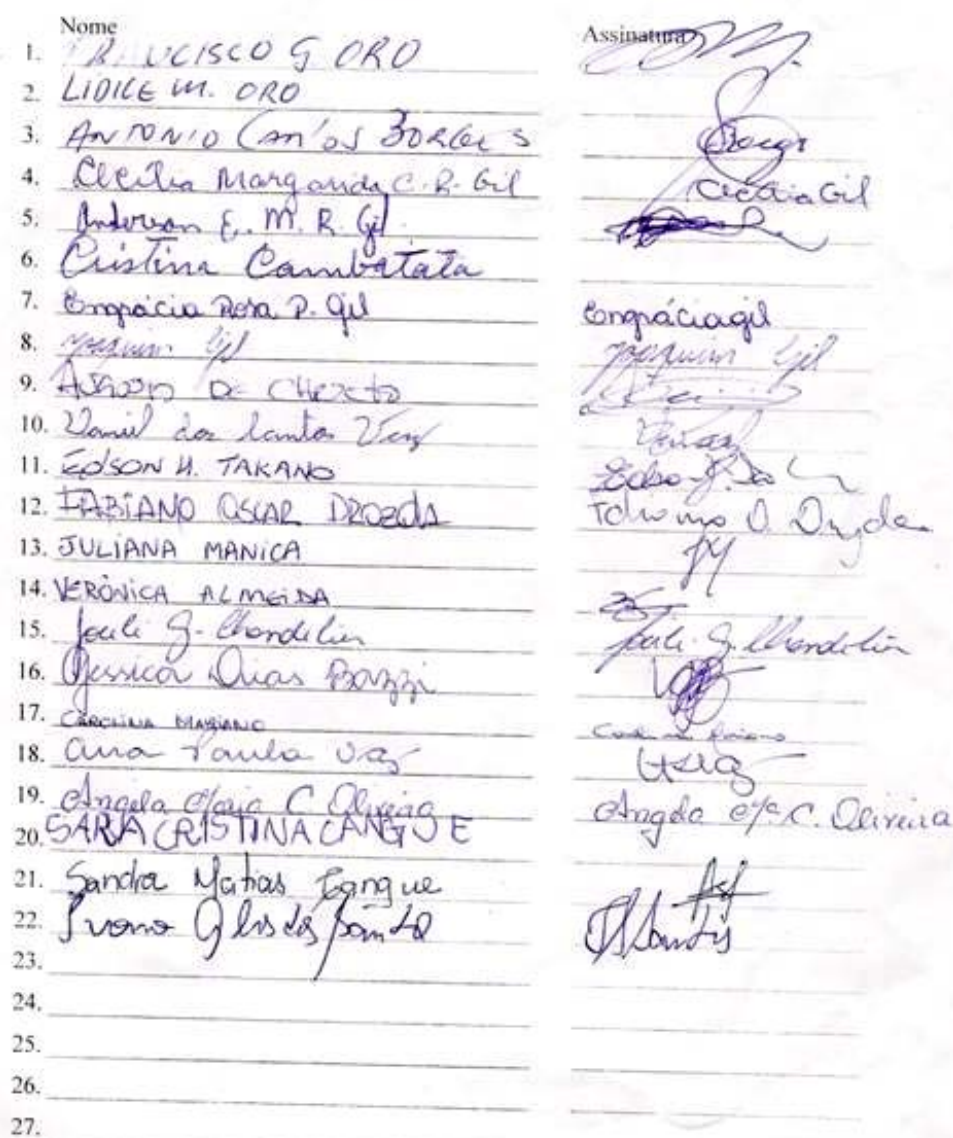 Nome Assinatura
1. FRANCISCO G ORO
2. LIDICE M. ORO
3. ANTONIO Carlos BORGES Borges
4. Cecília Margarida C. R. Gil Cecilia Gil
5. Anderson E. M. R. Gil
6. Cristina Cambatata
7. Engrácia Rosa P. Gil Engráciagil
8. Joaquim Gil Joaquim Gil
9.
10. Daniel dos Santos Vaz
11. EDSON H. TAKANO
12. FABIANO OSCAR DROZDA
13. JULIANA MANICA JM
14. VERÔNICA ALMEIDA
15. G. G.
16. Jessica Dias Bazzi
17. CAROLINA MARIANO
18. Ana Paula Vaz
19. Angela Maria C. Oliveira Angela Mª C. Oliveira
20. SARA CRISTINA CANGUE
21. Sandra Matias Cangue
22. dos Santos
23.
24.
25.
26.
27.